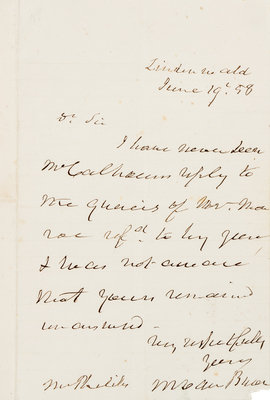 Lindenwald
June 19. 58
Dr Sir
I have never seen
Mr Calhouns reply to
the queries of Mr. Mon
roe refd to by you,
& was not aware
that yours remained
unanswerd.
very respectfully
yours
M Van Buren